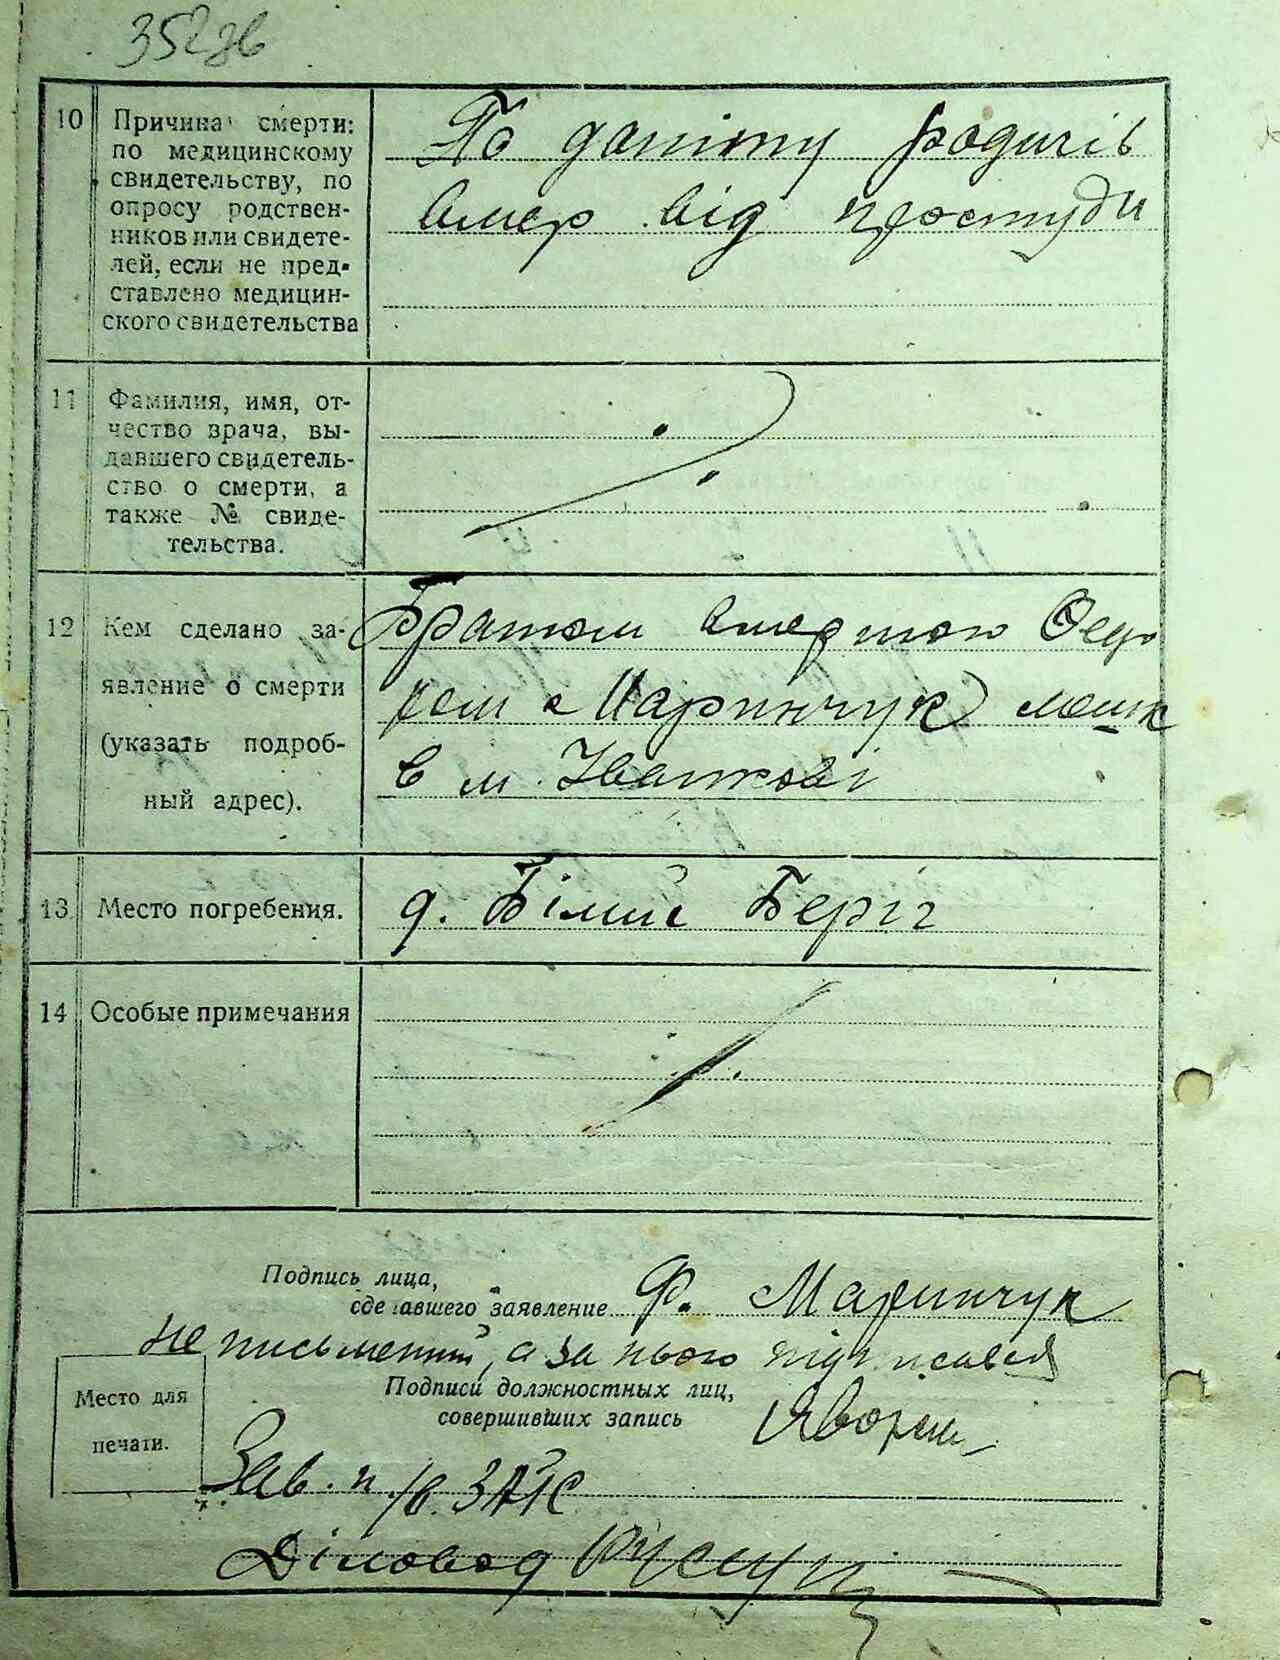 10 Причина смерти:
по медицинскому
свидетельству, по
опросу родствен-
ников или свидете-
лей, если не пред-
ставлено медицин-
ского свидетельства
По даніму родичів
вмер від простуди
11 Фамилия, имя, от-
чество врача, вы-
давшего свидетель-
ство о смерти, а
также № свиде-
тельства.
12 Кем сделано за-
явление о смерти
(указать подроб-
ный адрес).
Братом
Маринчук мешк
в м. Іванкові
13 Место погребения.
д. Білий Беріг
14 Особые примечания
Подпись лица,
сделавшего заявление Ф. Маринчук
не письменний, а за нього підписався
Подписи должностных лиц,
совершивших запись
Место для
печати.
Зав. п/в. ЗАГС
Діловод